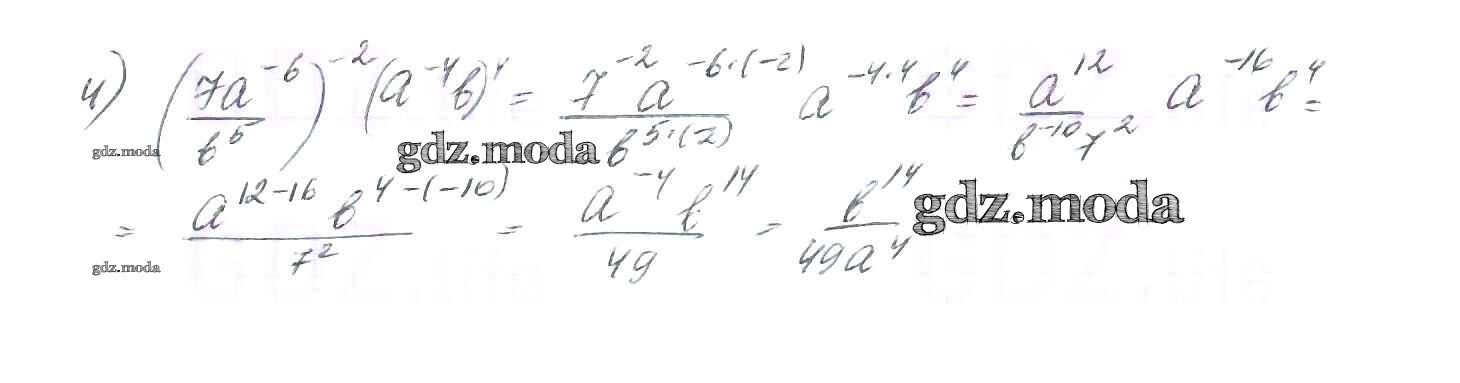 4) (7a⁻⁶/b⁵)⁻² (a⁻⁴b)⁴ = 7⁻²a⁻⁶·⁽⁻²⁾/b⁵·⁽⁻²⁾ a⁻⁴·⁴b⁴ = a¹²/b⁻¹⁰7² a⁻¹⁶b⁴ =
gdz.moda gdz.moda
= a¹²⁻¹⁶b⁴⁻⁽⁻¹⁰⁾/7² = a⁻⁴b¹⁴/49 = b¹⁴/49a⁴ gdz.moda
gdz.moda